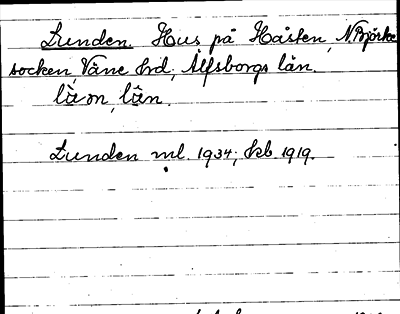 Lunden. Hus på Håsten, N. Björke
socken, Väne hrd, Älfsborgs län.
lùɔn, lûn.
Lunden ml. 1934; kb. 1919.